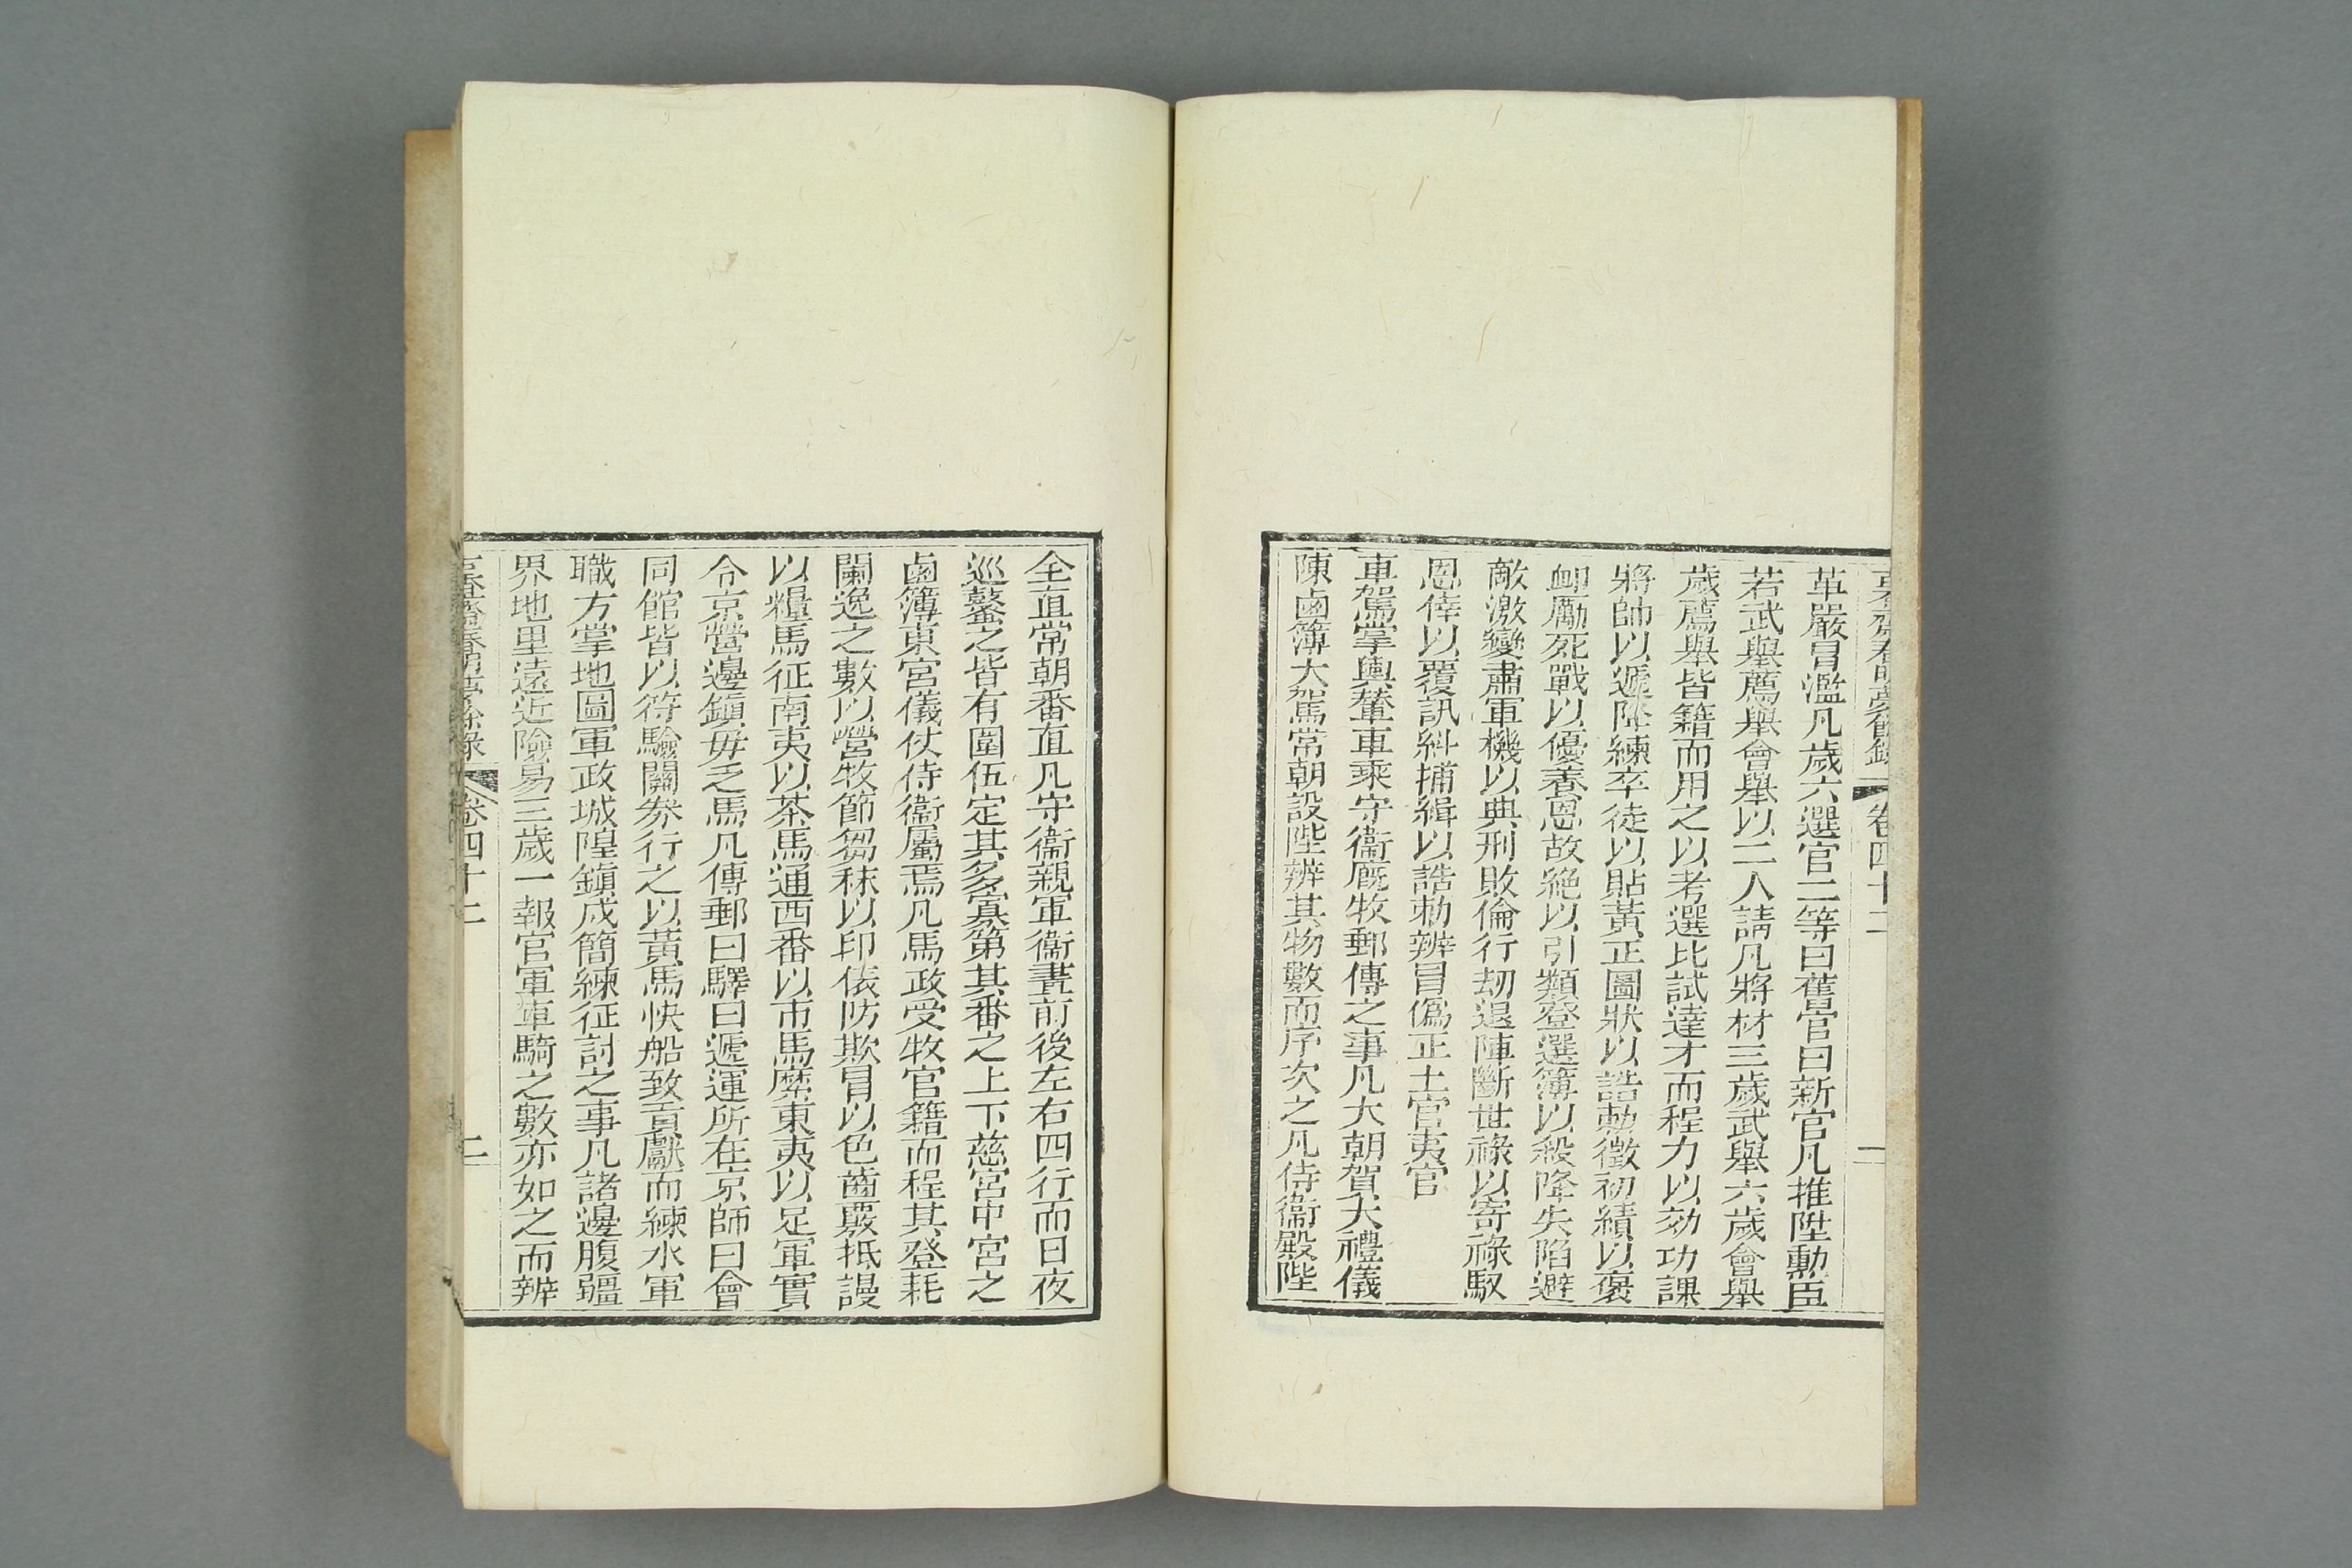 古香齋春明夢餘錄 卷四十二 一
革嚴冒濫凡歲六選官二等曰舊官曰新官凡推陞勳臣
若武舉薦舉會舉以二人請凡將材三歲武舉六歲會舉
歲薦舉皆籍而用之以考選比試達才而程力以効功課
將帥以遞陞練卒徒以貼黃正圖狀以誥勅徵初績以褒
卹勵死戰以優養恩故絕以引類登選簿以殺降失陷避
敵激變肅軍機以典刑敗倫行刼退陣斷世祿以寄祿馭
恩倖以覆訊糾捕緝以誥勅辨冒僞正土官夷官
車駕掌輿輦車乘守衞廐牧郵傳之事凡大朝賀大禮儀
陳鹵簿大駕常朝設陛辨其物數而序次之凡侍衞殿陛
全直常朝番直凡守衞親軍衞晝前後左右四行而日夜
巡鼜之皆有圍伍定其多寡第其番之上下慈宮中宮之
鹵簿東宮儀仗侍衞屬焉凡馬政受牧官籍而程其登耗
闌逸之數以營牧節芻秣以印俵防欺冒以色齒覈抵謾
以糧馬征南夷以茶馬通西番以市馬縻東夷以足軍實
令京營邊鎭毋乏馬凡傳郵曰驛曰遞運所在京師曰會
同館皆以符驗關券行之以黃馬快船致貢獻而練水軍
職方掌地圖軍政城隍鎭戍簡練征討之事凡諸邊腹疆
界地里遠近險易三歲一報官軍車騎之數亦如之而辨
古香齋春明夢餘錄 卷四十二 二